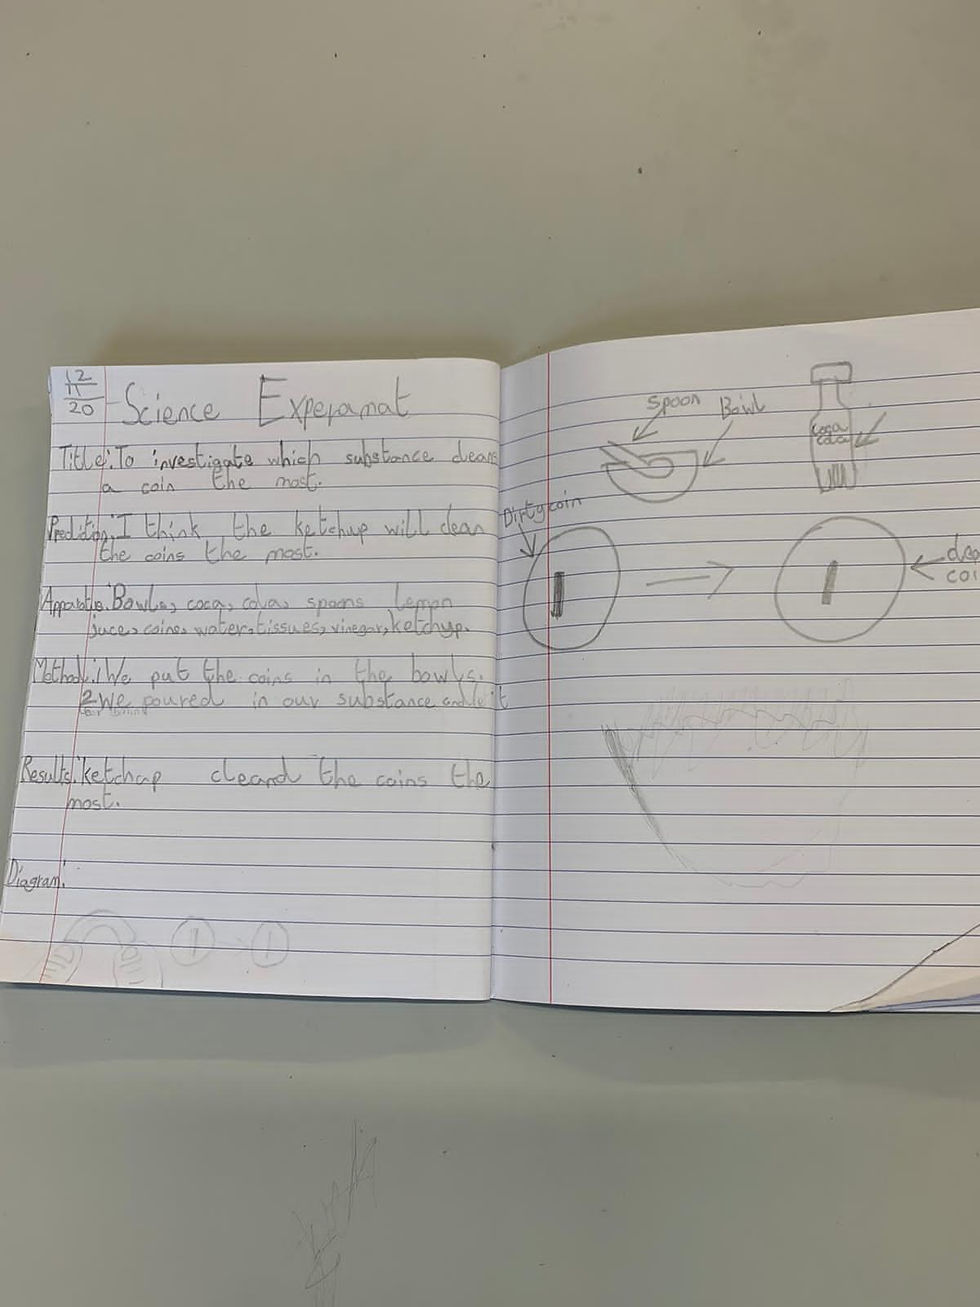 12
11
20
Science Experamat
Title: To investigate which substance cleans
a coin the most.
Predition: I think the ketchup will clean
the coins the most.
Apparatus: Bowls, coca, cola, spoons lemon
juce, coins, water, tissues, vinegar, ketchup.
Method: 1 We put the coins in the bowls.
2 We poured in our substance and let it
Results: ketchap cleand the coins the
most.
Diagram:
1 1
spoon
Bowl
coca
cola
Dirty coin
1 1
coi